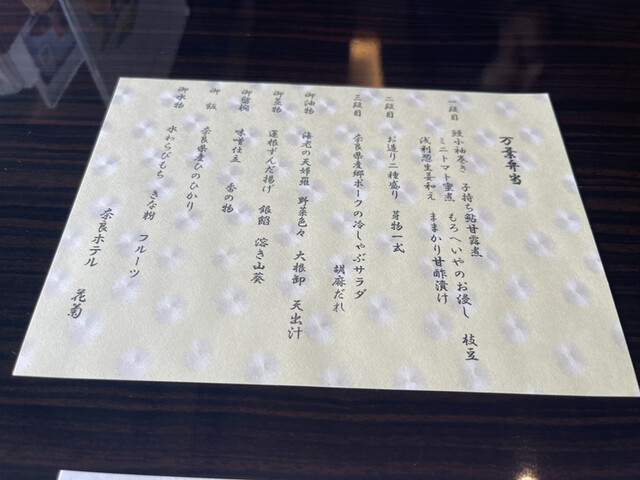 万葉弁当
一段目 鰻小袖巻き 子持ち鮎甘露煮
ミニトマト蜜煮 もろへいやのお浸し 枝豆
浅利葱生姜和え ままかり甘酢漬け
二段目 お造り二種盛り 芽物一式
三段目 奈良県産郷ポークの冷しゃぶサラダ
胡麻だれ
御油物 海老の天婦羅 野菜色々 大根卸 天出汁
御蒸物 蓮根ずんだ揚げ 銀餡 溶き山葵
御留椀 味噌仕立 香の物
御飯 奈良県産ひのひかり
御水物 水わらびもち きな粉 フルーツ
奈良ホテル 花菊